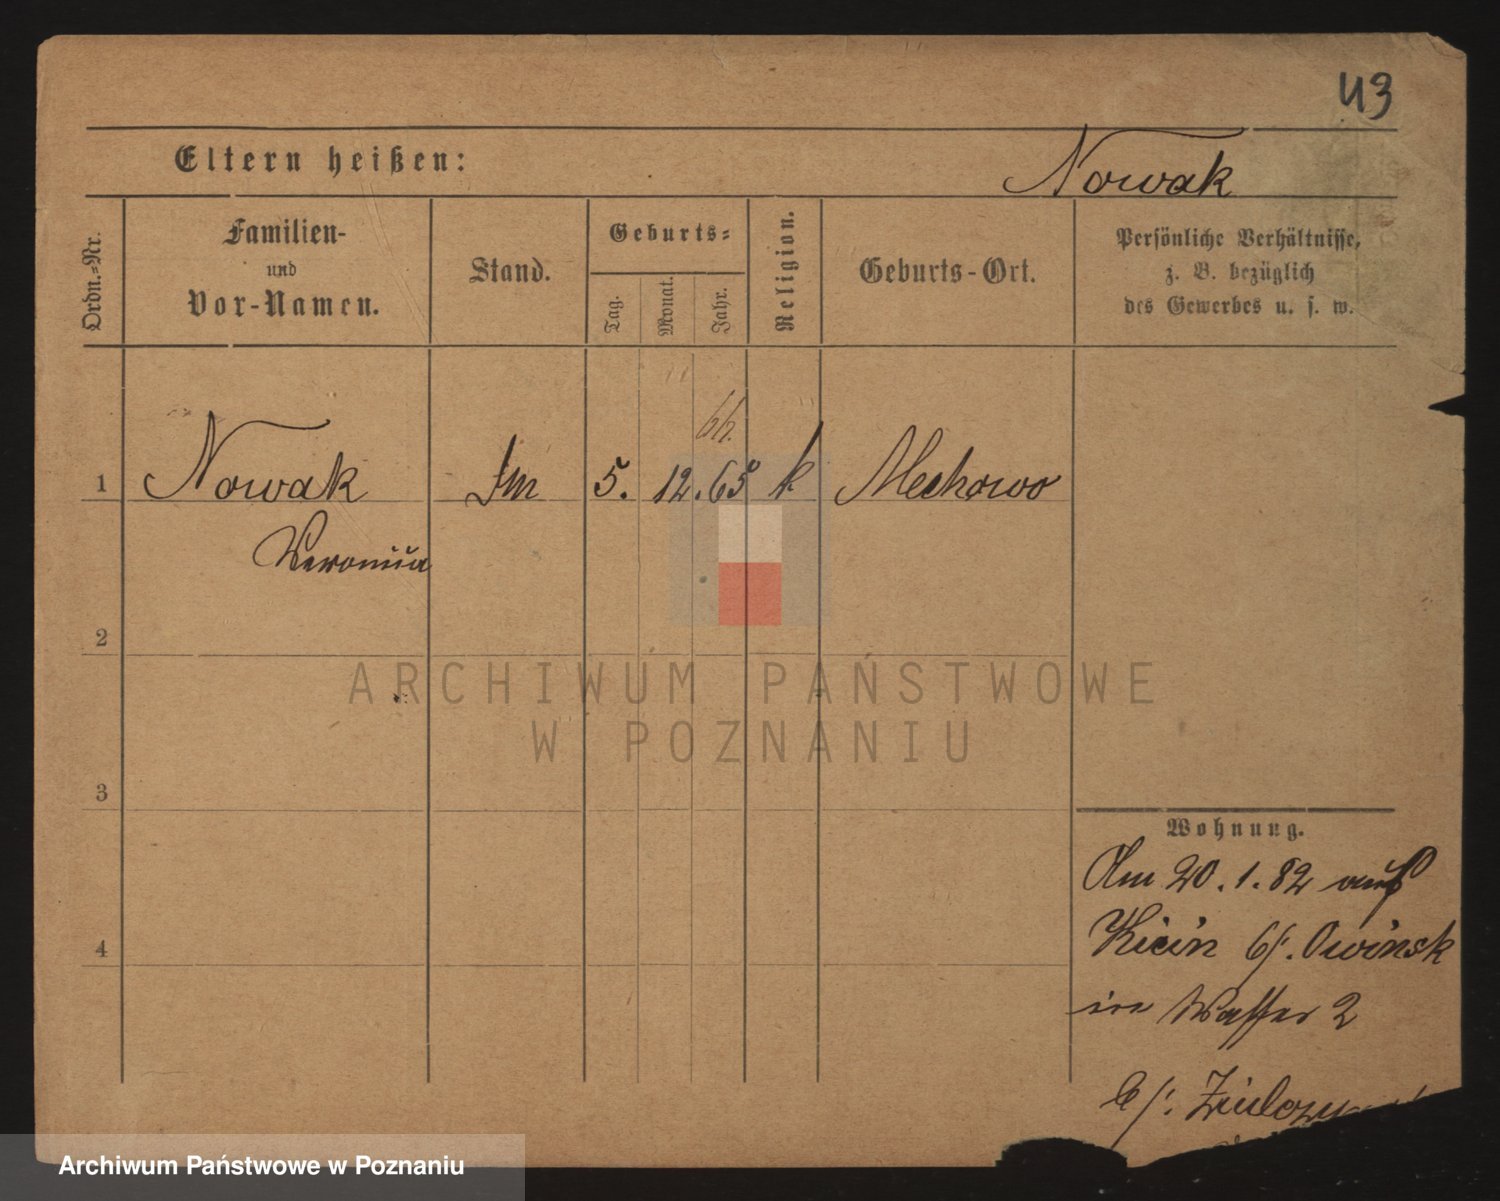 43
Eltern heißen:
Nowak
Ordn.=Nr.
Familien-
und
Vor-Namen.
Stand.
Geburts=
Tag.
Monat.
Jahr.
Religion.
Geburts-Ort.
Persönliche Verhältnisse,
z. B. bezüglich
des Gewerbes u. s. w.
66.
1 Nowak 5. 12. 65 k Mechowo
Veronica
2
ARCHIWUM PAŃSTWOWE
W POZNANIU
3
Wohnung.
Am 20.1.82 auf
Kicin b/. Owinsk
4
in Wasser 2
b/.
Archiwum Państwowe w Poznaniu